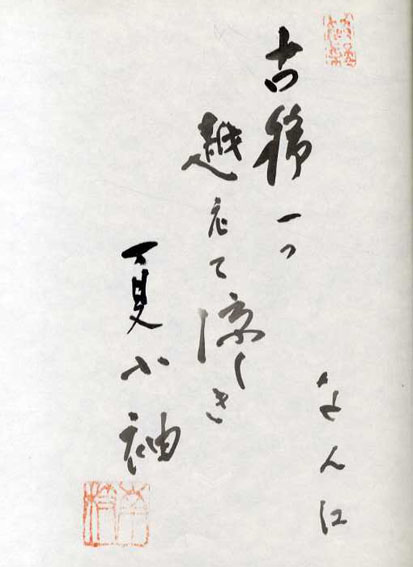 なん江
古稀一つ
越えて涼しき
夏小袖